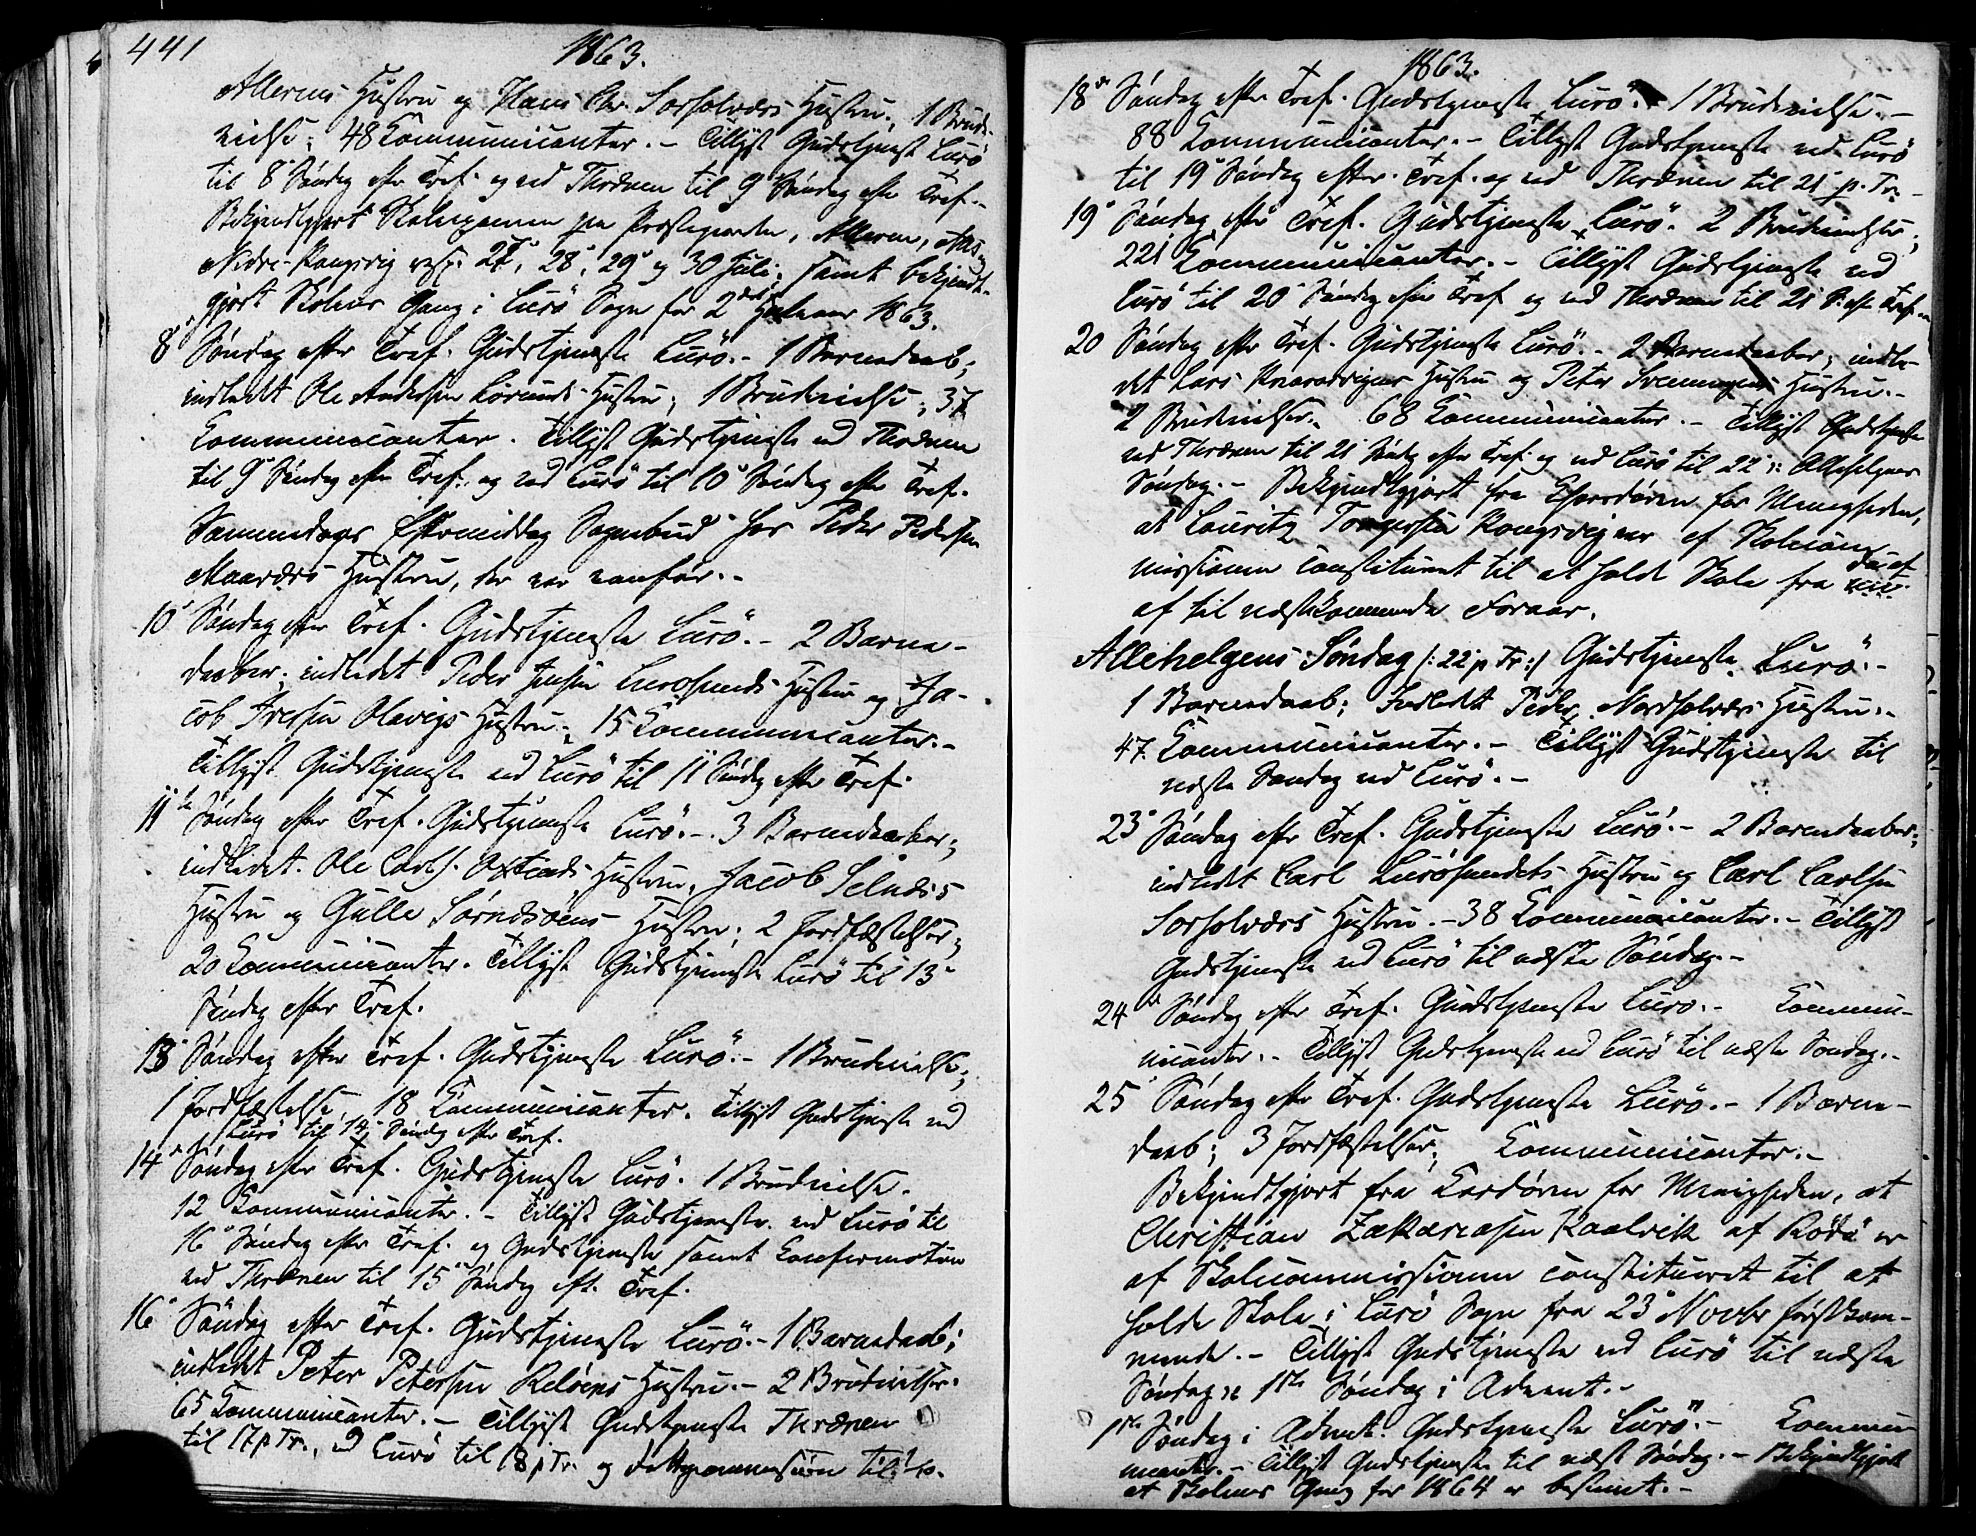 441
1863.
Alleruns Hustru og Hans Chr. Sorsolværs Hustru; 1 Brude-
vielse; 48 Communicanter. - Tillyst Gudstjenest Lurö
til 8' Søndag efter Tref. og ved Thrænen til 9' Søndag efter Tref.-
Bekjendtgjort Skolexamen paa Præstegaarden, Alleren,
Nedre-Kongsvig resp. 27', 28', 29' og 30 Juli; samt bekjendt-
gjort Skolens Gang i Lurö Sogn for 2det Halvaar 1863.
8' Søndag efter Tref. Gudstjeneste Lurö.- 1 Barnedaab;
indledt Ole Andersen Lorunds Hustru; 1 Brudevielse; 37
Communicanter. Tillyst Gudstjeneste ved Thrænen
til 9' Søndag efter Tref. og ved Lurö til 10' Søndag efter Tref.
Sammedags Eftermiddag Sognebud hos Peder Pedersen
Maaværs Hustru, der var vanfør.-
10' Søndag efter Tref. Gudstjeneste Lurö.- 2 Barne-
daaber; indledet Peder Jensen Lurösunds Hustru og Ja-
cob Iversen Olavigs Hustru; 15 Communicanter.-
Tillyst Gudstjeneste ved Lurö til 11 Søndag efter Tref.
11te Søndag efter Tref. Gudstjeneste Lurö.-. 3 Barnedaaber;
indledet. Ole Carls. Hustru, Jacob Selnæs's
Hustru og Gulle Sørnæsøens Hustru; 2 Jordfæstelser;
20 Communicanter. Tillyst Gudstjeneste Lurö til 13'
Søndag efter Tref.
13' Søndag efter Tref. Gudstjeneste Lurö.- 1 Brudevielse;
1 Jordfæstelse, 18 Communicanter. Tillyst Gudstjeneste ved
Lurö til 14' Søndag efter Tref.
14' Søndag efter Tref. Gudstjeneste Lurö. 1 Brudevielse.
12 Communicanter. - Tillyst Gudstjeneste ved Lurö til
16' Søndag efter Tref. og Gudstjeneste samt Confirmation
ved Thrænen til 15' Søndag eft. Tref.
16' Søndag efter Tref. Gudstjeneste Lurö.- 1 Barnedaab;
indledet Peter Petersen Reløens Hustru.- 2 Brudevielser.
65 Communicanter. - Tillyst Gudstjeneste Thrænen
til 17 p Tr., ved Lurö til 18 p Tr. og
1863.
18' Søndag efter Tref. Gudstjeneste Lurö. - 1 Brudevielse. -
88 Communicanter. - Tillyst Gudstjeneste ved Lurö
til 19' Søndag efter Tref. og ved Thrænen til 21' p. Tr. -
19' Søndag efter Tref. Gudstjeneste Lurö. 2 Brudevielser;
221 Communicanter. - Tillyst Gudstjeneste ved
Lurö til 20' Søndag efter Tref og ved Thrænen til 21' S. efter Tref.
20 Søndag efter Tref. Gudstjeneste Lurö. - 2 Barnedaaber; indle-
det Lars Kvarøvigens Hustru og Peter Svenningens Hustru.-
2 Brudevielser. 68 Communicanter. - Tillyst Gudstjeneste
ved Thrænen til 21 Søndg efter Tref. og ved Lurö til 22' Allehelgens
Søndag. - Bekjendtgjort fra Chordøren for Menigheden,
at Lauritz Torgersen Kongsvig er af Skolecom-
missionen constitueret til at holde Skole fra
af til næstkommende Foraar.
Allehelgens Søndag (: 22' p Tr:) Gudstjeneste. Lurö.-
1 Barnedaab; Indledt Peder Nordsolværs Hustru.-
47. Communicanter. - Tillyst Gudstjeneste til
næste Søndag ved Lurö. -
23' Søndag efter Tref. Gudstjeneste Lurö.- 2 Barnedaaber;
indledet Carl Lurösundets Hustru og Carl Carlsen
Sorsolværs Hustru. - 38 Communicanter. - Tillyst
Gudstjeneste ved Lurö til næste Søndag. -
24' Søndag efter Tref. Gudstjeneste Lurö. - Commu-
nicanter. - Tillyst Gudstjeneste ved Lurö til næste Søndag.-
25' Søndag efter Tref. Gudstjeneste Lurö. - 1 Barne-
daab; 3 Jordfæstelser; Communicanter. -
Bekjendtgjort fra Cordøren for Menigheden, at
Christian Zakariasen Kaalvik af Rödö er
af Skolecommissionen constitueret til at
holde Skole i Lurö Sogn fra 23' Novbr førstkom-
mende. - Tillyst Gudstjeneste ved Lurö til næste
Søndag 1ste Søndag i Advent. -
1ste Søndag i Advent. Gudstjeneste Lurö. - Commu-
nicanter. - Tillyst Gudstjeneste til næst Søndag. - Bekjendtgjort
at Skolens Gang for 1864 er bestemt. -